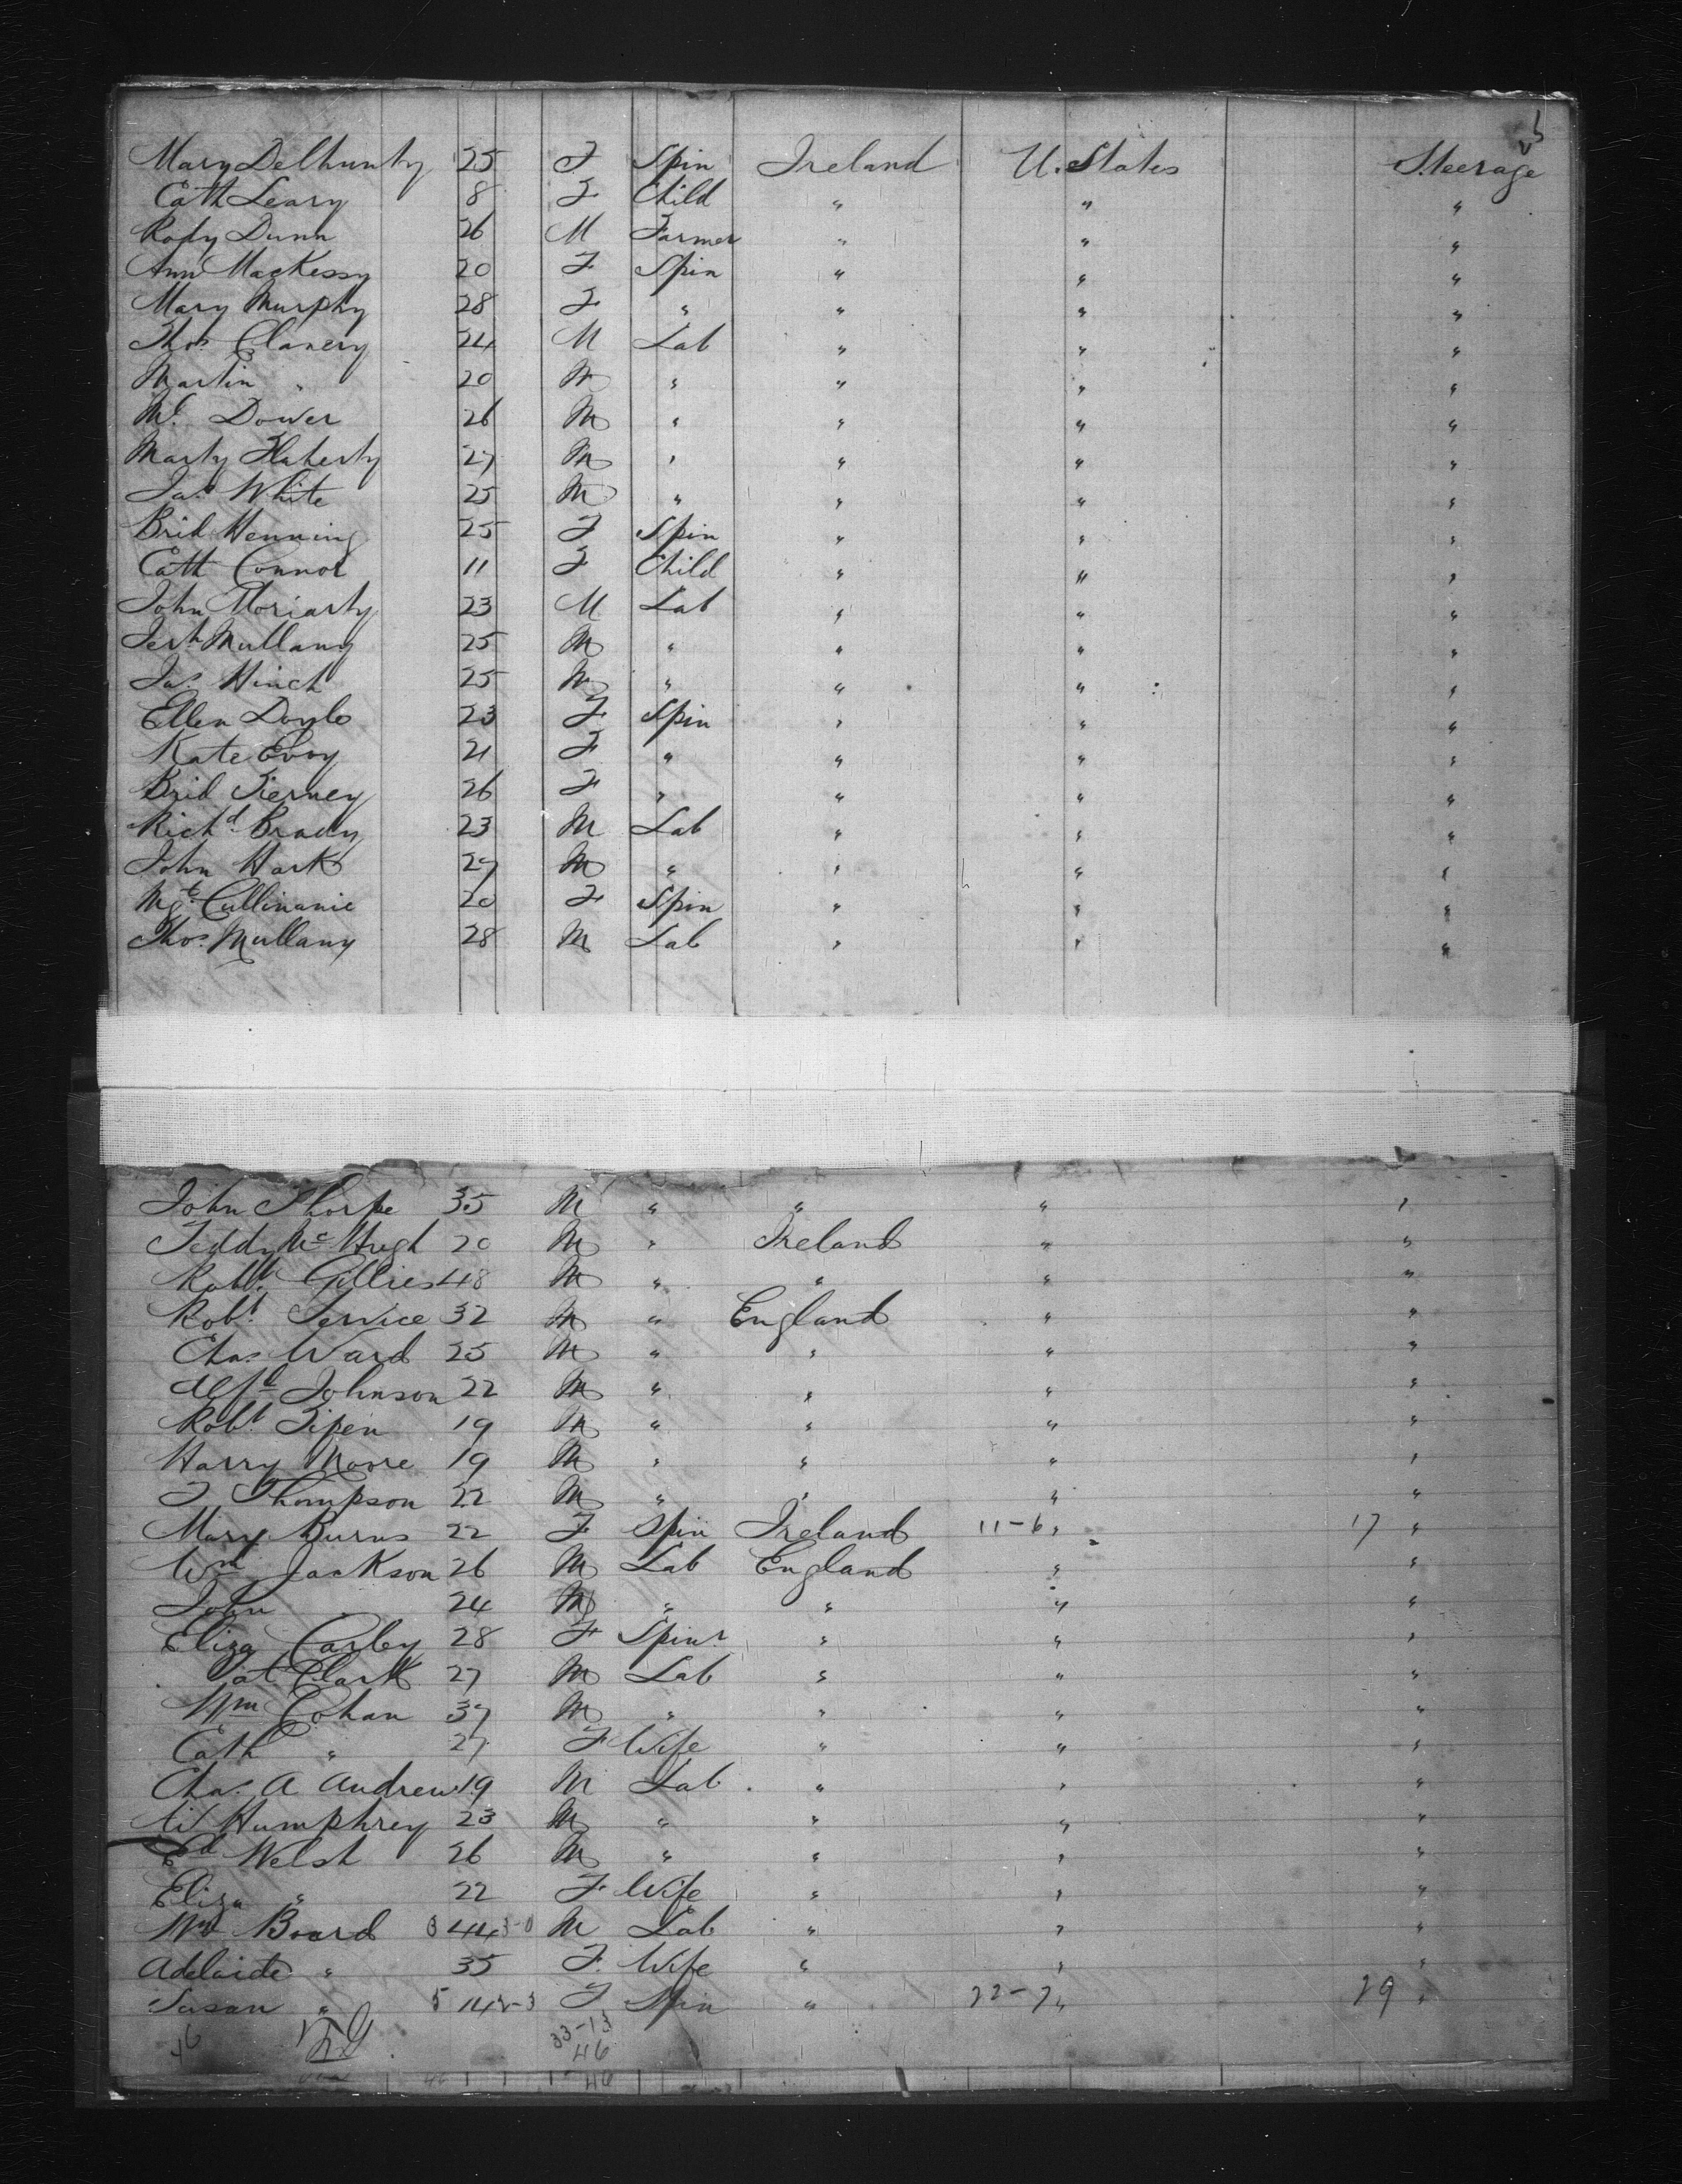 Mary Delhunty 25 F Spin Ireland U. States Steerage
Cath Leary 8 F Child " " "
Rody Dunn 26 M Farmer " " "
Ann Mackessy 20 F Spin " " "
Mary Murphy 28 F " " " "
Thos Clanery 24 M Lab " " "
Martin " 20 M " " " "
Ml Dower 26 M " " " "
Marty Flaherty 27 M " " " "
Jas White 25 M " " " "
Brid Henning 25 F Spin " " "
Cath Connor 11 F Child " " "
John Moriarty 23 M Lab " " "
Jerh Mullany 25 M " " " "
Jas Hinch 25 M " " " "
Ellen Doyle 23 F Spin " " "
Kate Evoy 21 F " " " "
Brid Tierney 26 F " " " "
Richd Brady 23 M Lab " " "
John Hark 27 M " " " "
Mgt Cullinanie 20 F Spin " " "
Thos Mullany 28 M Lab " " "
John Thorpe 35 M " " " "
Teddy McHugh 20 M " Ireland " "
Robt Gillies 48 M " " " "
Robt Service 32 M " England " "
Chas Ward 25 M " " " "
Alfd Johnson 22 M " " " "
Robt Tipen 19 M " " " "
Harry Moore 19 M " " " "
T Thompson 22 M " " " "
Mary Burns 22 F Spin Ireland 11-6 " 17 "
Wm Jackson 26 M Lab England " "
John " 24 M " " " "
Eliza Carley 28 F Spinr " " "
Pat Clark 27 M Lab " " "
Wm Cohan 37 M " " " "
Cath " 27 F Wife " " "
Chas. A Andrew 19 M Lab " " "
W Humphrey 23 M " " " "
Ed Welsh 26 M " " " "
Eliza " 22 F Wife " " "
Wm Board 44 3-0 M Lab " " "
Adelaide " 35 F. Wife " " "
Susan " 5 14 2-3 F Spin " 22-7 " 29 "
46 33-13
46
46